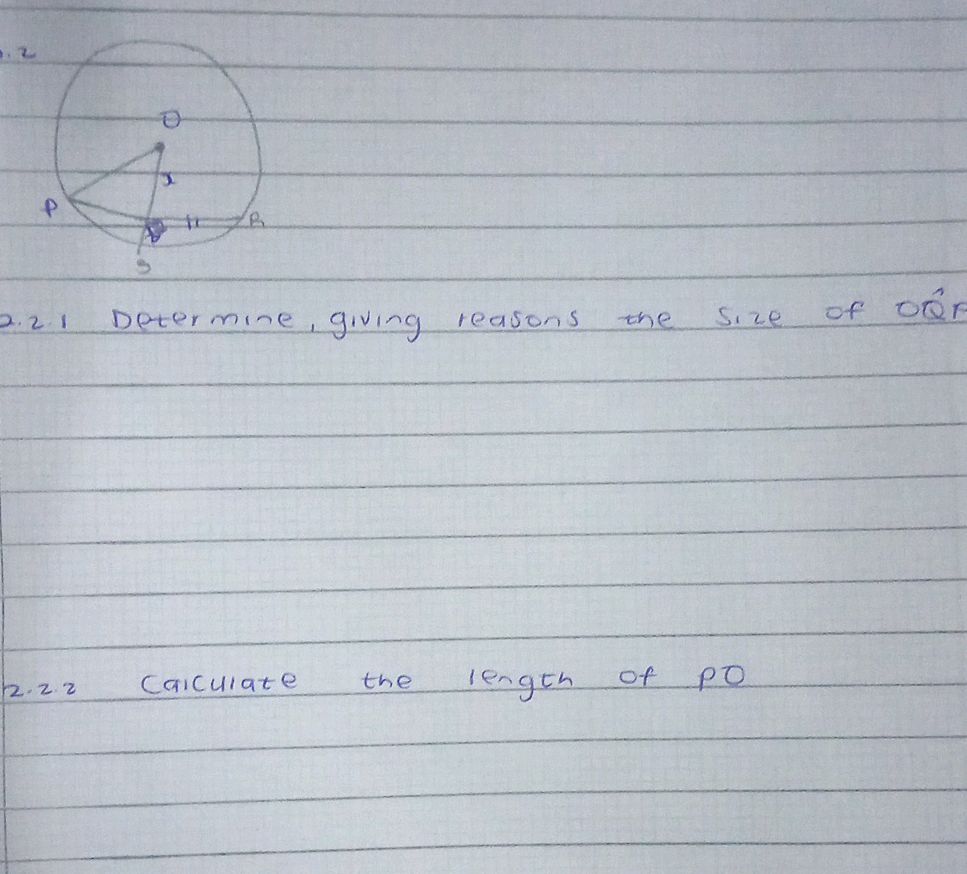 .2
O
x
P
R
S
2.2.1 Determine, giving reasons the size of
2.2.2 Calculate the length of PO